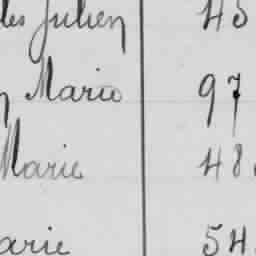 les Julien 45
Marie 97
Marie 48
arie 54